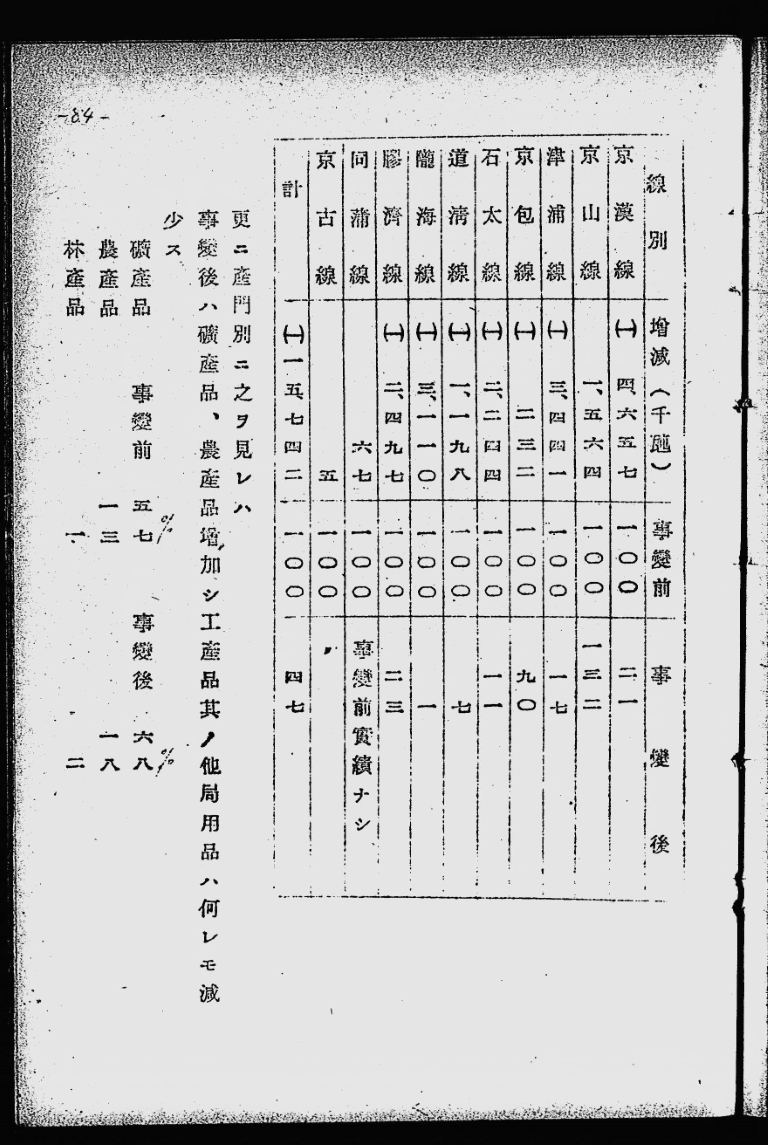 -84-
線別 增減(千瓲) 事變前 事變後
京漢線 (一)四、六五七 一〇〇 二一
京山線 一、五六四 一〇〇 一三二
津浦線 (一)三、四四一 一〇〇 一七
京包線 (一)二三二 一〇〇 九〇
石太線 (一)二、二四四 一〇〇 一一
道淸線 (一)一、一九八 一〇〇 七
隴海線 (一)三、一一〇 一〇〇 一
膠濟線 (一)二、四九七 一〇〇 二三
同蒲線 六七 一〇〇 事變前實績ナシ
京古線 五 一〇〇 〃
計 (一)一五、七四二 一〇〇 四七
更ニ產門別ニ之ヲ見レハ
事變後ハ礦產品、農產品增加シ工產品其ノ他局用品ハ何レモ減
少ス
礦產品 事變前 五七% 事變後 六八%
農產品 一三 一八
林產品 一 二